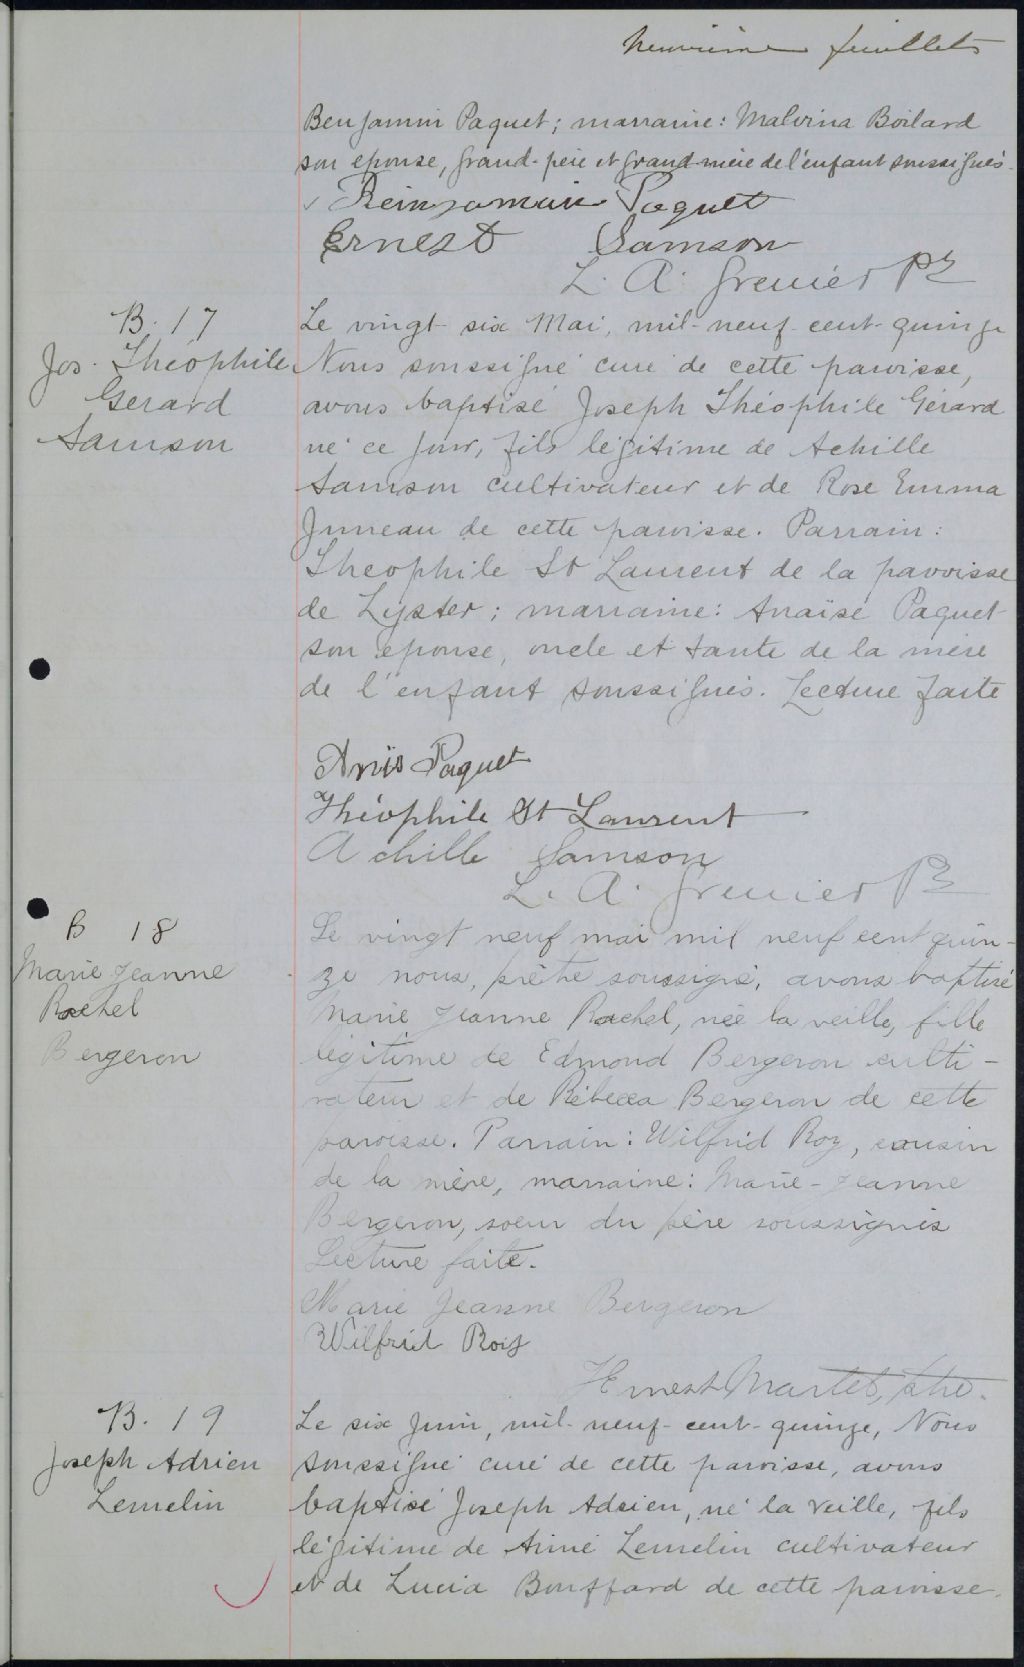 neuvième feuillet
Benjamin Paquet; marraine: Malvina Boilard
son épouse, grand-père et grand mère de l'enfant soussignés.
Beinjamain Paquet
Ernest Samson
L. A. Grenier Ptr
B. 17
Jos. Théophile
Gérard
Samson
Le vingt-six Mai, mil-neuf-cent-quinze
Nous soussigné curé de cette paroisse,
avons baptisé Joseph Théophile Gérard
né ce jour, fils légitime de Achille
Samson cultivateur et de Rose Emma
Juneau de cette paroisse. Parrain:
Théophile St Laurent de la paroisse
de Lyster; marraine: Anaïse Paquet
son épouse, oncle et tante de la mère
de l'enfant soussignés. Lecture faite
Anïs Paquet
Théophile St Laurent
Achille Samson
L. A. Grenier Ptr
B 18
Marie Jeanne
Rachel
Bergeron
Le vingt neuf mai mil neuf cent quin-
ze nous, prêtre soussigné, avons baptisé
Marie Jeanne Rachel, née la veille, fille
légitime de Edmond Bergeron culti-
vateur et de Rébecca Bergeron de cette
paroisse. Parrain: Wilfrid Roy, cousin
de la mère, marraine: Marie-Jeanne
Bergeron, soeur du père soussignés
Lecture faite.
Marie Jeanne Bergeron
Wilfrid Roy
Hernest Martel, ptre.
B. 19
Joseph Adrien
Lemelin
Le six Juin, mil-neuf-cent-quinze, Nous
soussigné curé de cette paroisse, avons
baptisé Joseph Adrien, né la veille, fils
légitime de Aimé Lemelin cultivateur
et de Lucia Bouffard de cette paroisse.